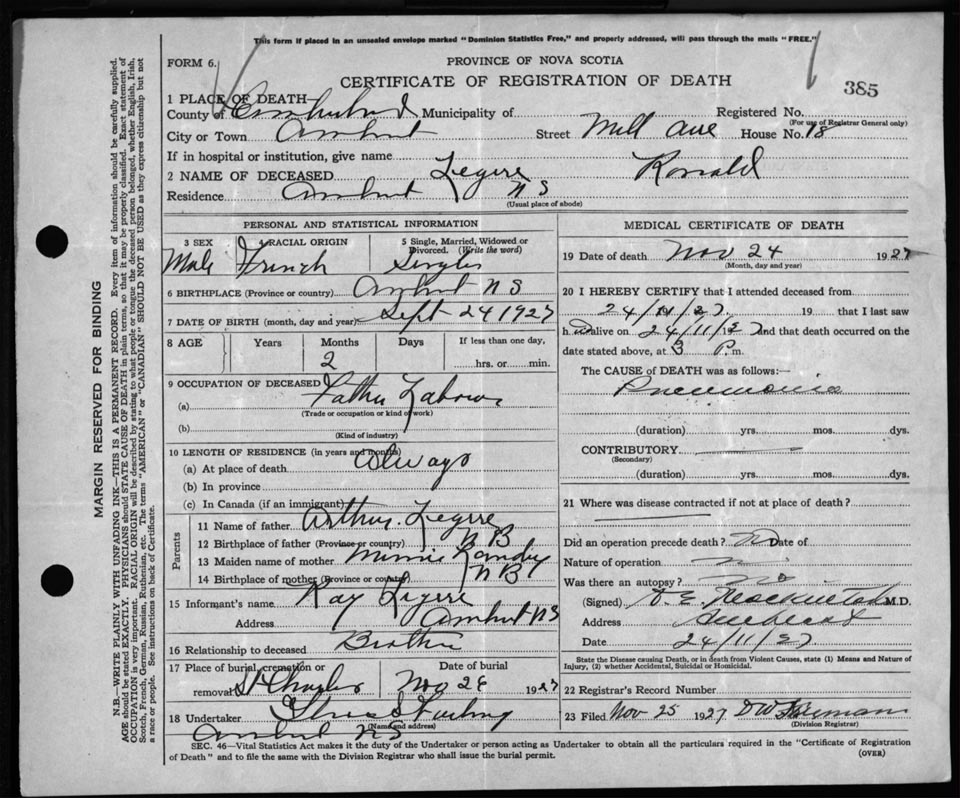 This form if placed in an unsealed envelope marked "Dominion Statistics Free," and properly addressed, will pass through the mails "FREE."
FORM 6.
PROVINCE OF NOVA SCOTIA
CERTIFICATE OF REGISTRATION OF DEATH
385
1 PLACE OF DEATH
County of Cumberland Municipality of Registered No.
(For use of Registrar General only)
City or Town Amherst Street Mill Ave House No. 18
If in hospital or institution, give name
2 NAME OF DECEASED Legere Ronald
Residence Amherst N S
(Usual place of abode)
PERSONAL AND STATISTICAL INFORMATION
3 SEX Male 4 RACIAL ORIGIN French 5 Single, Married, Widowed or Divorced. (Write the word) Single
6 BIRTHPLACE (Province or country) Amherst N S
7 DATE OF BIRTH (month, day and year) Sept 24 1927
8 AGE Years Months Days If less than one day,
2 hrs. or min.
9 OCCUPATION OF DECEASED
(a) Father Labourer
(Trade or occupation or kind of work)
(b)
(Kind of industry)
10 LENGTH OF RESIDENCE (in years and months)
(a) At place of death Always
(b) In province
(c) In Canada (if an immigrant)
Parents
11 Name of father Arthur Legere
12 Birthplace of father (Province or country) N B
13 Maiden name of mother Minnie Landry
14 Birthplace of mother (Province or country) N B
15 Informant's name Ray Legere
Address Amherst N S
16 Relationship to deceased Brother
17 Place of burial, cremation or removal St Charles Date of burial Nov 26 1927
18 Undertaker
(Name and address)
Amherst N S
MEDICAL CERTIFICATE OF DEATH
19 Date of death Nov 24 1927
(Month, day and year)
20 I HEREBY CERTIFY that I attended deceased from
24/11/27 19 that I last saw
h alive on 24/11/27 and that death occurred on
date stated above, at 3 P. m.
The CAUSE OF DEATH was as follows:—
Pneumonia
(duration) yrs. mos. dys.
CONTRIBUTORY
(Secondary)
(duration) yrs. mos. dys.
21 Where was disease contracted if not at place of death?
Did an operation precede death? No Date of
Nature of operation
Was there an autopsy? No
(Signed) A. E. Mackintosh M.D.
Address Amherst
Date 24/11/27
State the Disease causing Death, or in death from Violent Causes, state (1) Means and Nature of
Injury, (2) whether Accidental, Suicidal or Homicidal.
22 Registrar's Record Number
23 Filed Nov 25 1927 D W
(Division Registrar)
SEC. 46—Vital Statistics Act makes it the duty of the Undertaker or person acting as Undertaker to obtain all the particulars required in the "Certificate of Registration
of Death" and to file the same with the Division Registrar who shall issue the burial permit.
(OVER)
MARGIN RESERVED FOR BINDING
N.B.—WRITE PLAINLY WITH UNFADING INK—THIS IS A PERMANENT RECORD. Every item of information should be carefully supplied.
AGE should be stated EXACTLY. PHYSICIANS should STATE CAUSE OF DEATH in plain terms, so that it may be properly classified. Exact statement of
OCCUPATION is very important. RACIAL ORIGIN will be described by stating to what people or tongue the deceased person belonged, whether English, Irish,
Scotch, French, German, Russian, Ruthenian, etc. The terms "AMERICAN" or "CANADIAN" SHOULD NOT BE USED as they express citizenship but not
a race or people. See instructions on back of Certificate.